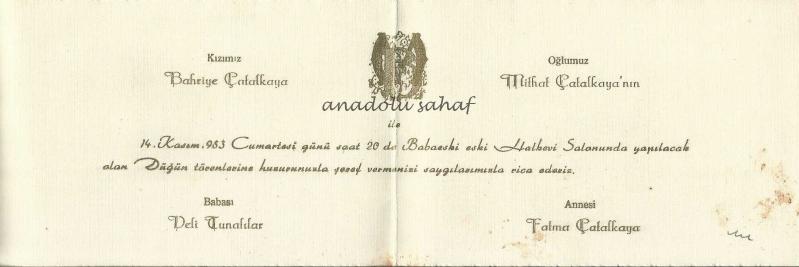 Kızımız
Bahriye Çatalkaya
Oğlumuz
Mithat Çatalkaya'nın
anadolu sahaf
ile
14. Kasım. 953 Cumartesi günü saat 20 de Babaeski eski Halkevi Salonunda yapılacak
olan Düğün törenlerine huzurunuzla şeref vermenizi saygılarımızla rica ederiz.
Babası
Veli Tunalılar
Annesi
Fatma Çatalkaya